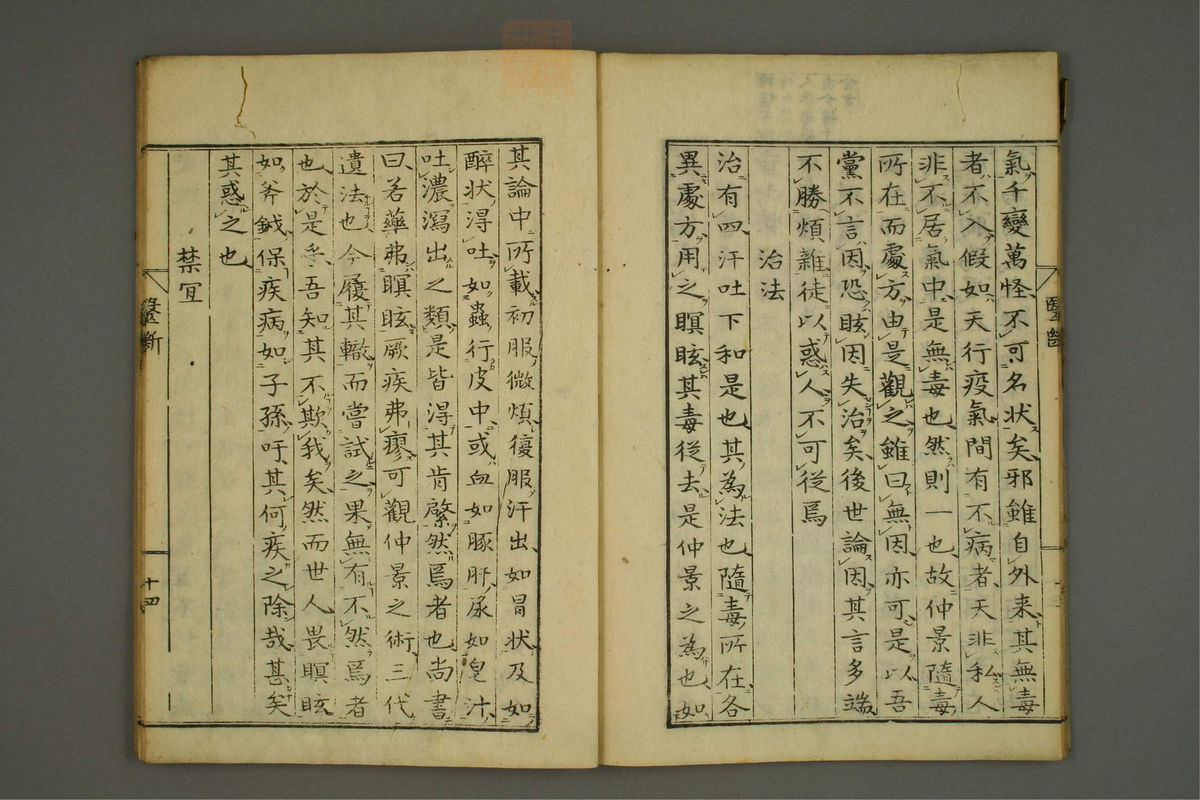 氣千變萬怪不可名狀矣邪雖自外来其無毒
者不入假如天行疫氣間有不病者天非私人
非不居氣中是無毒也然則一也故仲景隨毒
所在而處方由是觀之雖曰無因亦可是以吾
黨不言因恐眩因失治矣後世論因其言多端
不勝煩雜徒以惑人不可從焉
治法
治有四汗吐下和是也其為法也隨毒所在各
異處方用之瞑眩其毒從去是仲景之為也如
其論中所載初服微煩復服汗出如冒狀及如
醉狀得吐如蟲行皮中或血如豚肝尿如皂汁
吐濃瀉出之類是皆得其肯綮然焉者也尚書
曰若藥弗瞑眩厥疾弗瘳可觀仲景之術三代
遺法也今履其轍而嘗試之果無有不然焉者
也於是乎吾知其不欺我矣然而世人畏瞑眩
如斧鉞保疾病如子孫吁其何疾之除哉甚矣
其惑之也
禁宜
醫斷
十四